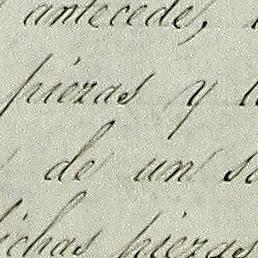 antecede,
piezas y
de un
dichas piezas